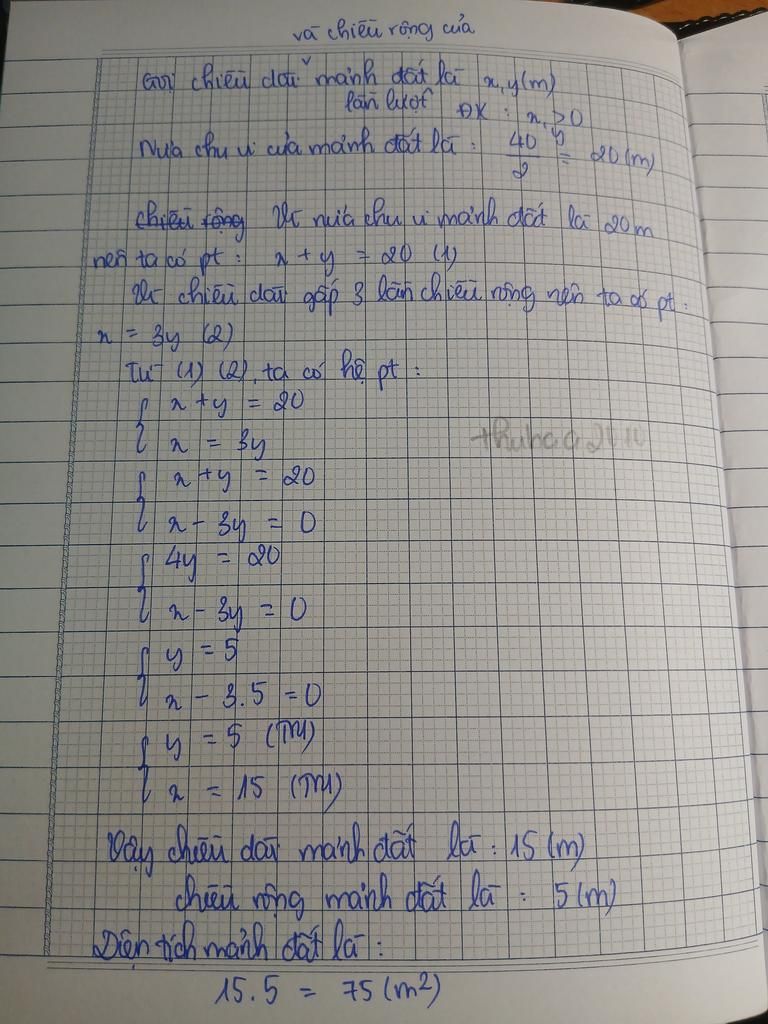 và chiều rộng của
Gọi chiều dài ˅ mảnh đất là x, y (m)
lần lượt ĐK : x, y > 0
Nửa chu vi của mảnh đất là : 40/2 = 20 (m)
chiều rộng Vì nửa chu vi mảnh đất là 20m
nên ta có pt : x + y = 20 (1)
Vì chiều dài gấp 3 lần chiều rộng nên ta có pt :
x = 3y (2)
Từ (1) (2), ta có hệ pt :
x + y = 20
x = 3y
x + y = 20
x - 3y = 0
4y = 20
x - 3y = 0
y = 5
x - 3.5 = 0
y = 5 (TM)
x = 15 (TM)
Vậy chiều dài mảnh đất là : 15 (m)
chiều rộng mảnh đất là : 5 (m)
Diện tích mảnh đất là :
15.5 = 75 (m²)